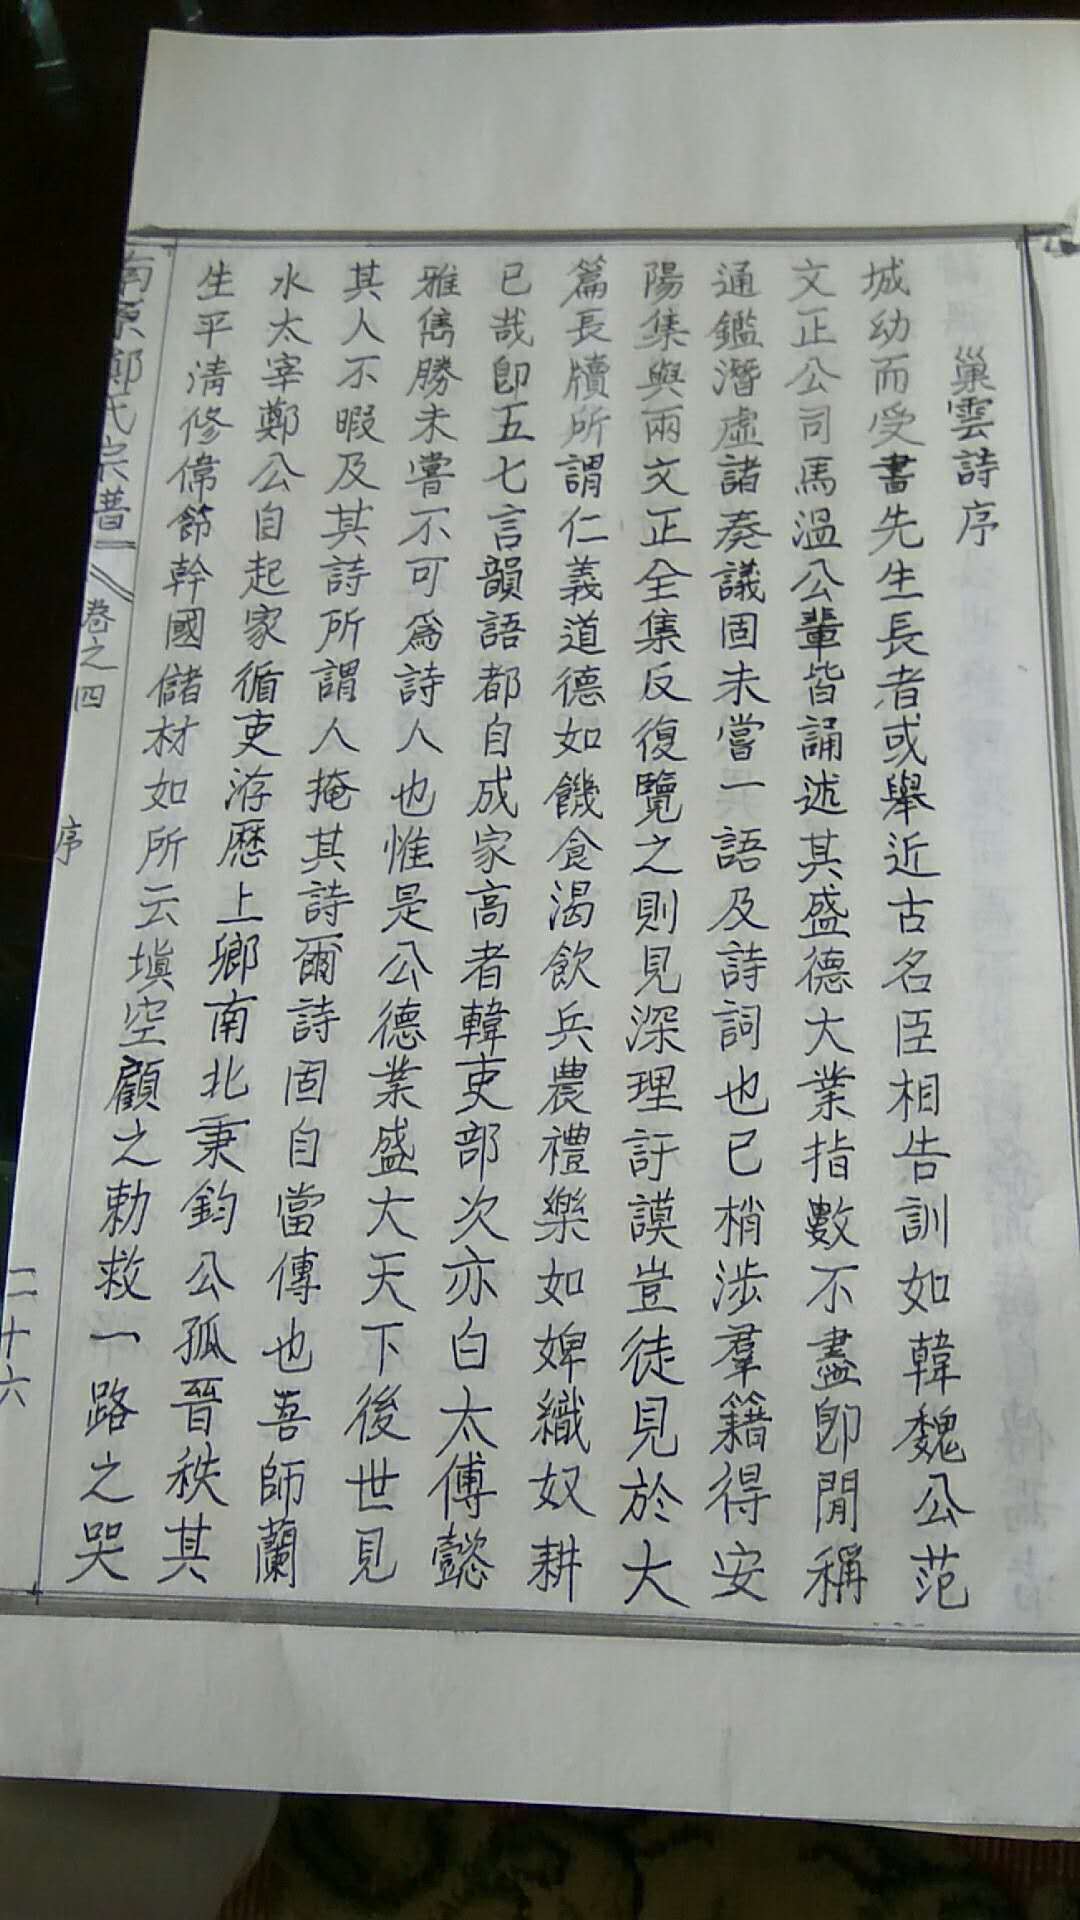 巢雲詩序
城幼而受書先生長者或舉近古名臣相告訓如韓魏公范
文正公司馬溫公輩皆誦述其盛德大業指數不盡卽閒稱
通鑑潛虛諸奏議固未嘗一語及詩詞也已梢涉羣籍得安
陽集與兩文正全集反復覽之則見深理訏謨豈徒見於大
篇長牘所謂仁義道德如饑食渴飲兵農禮樂如婢織奴耕
已哉卽五七言韻語都自成家高者韓吏部次亦白太傅懿
雅雋勝未嘗不可爲詩人也惟是公德業盛大天下後世見
其人不暇及其詩所謂人掩其詩爾詩固自當傳也吾師蘭
水太宰鄭公自起家循吏游歷上鄉南北秉鈞公孤晉秩其
生平清修偉節幹國儲材如所云塡空顧之勅救一路之哭
南原鄭氏宗普
卷之四
序
二十六